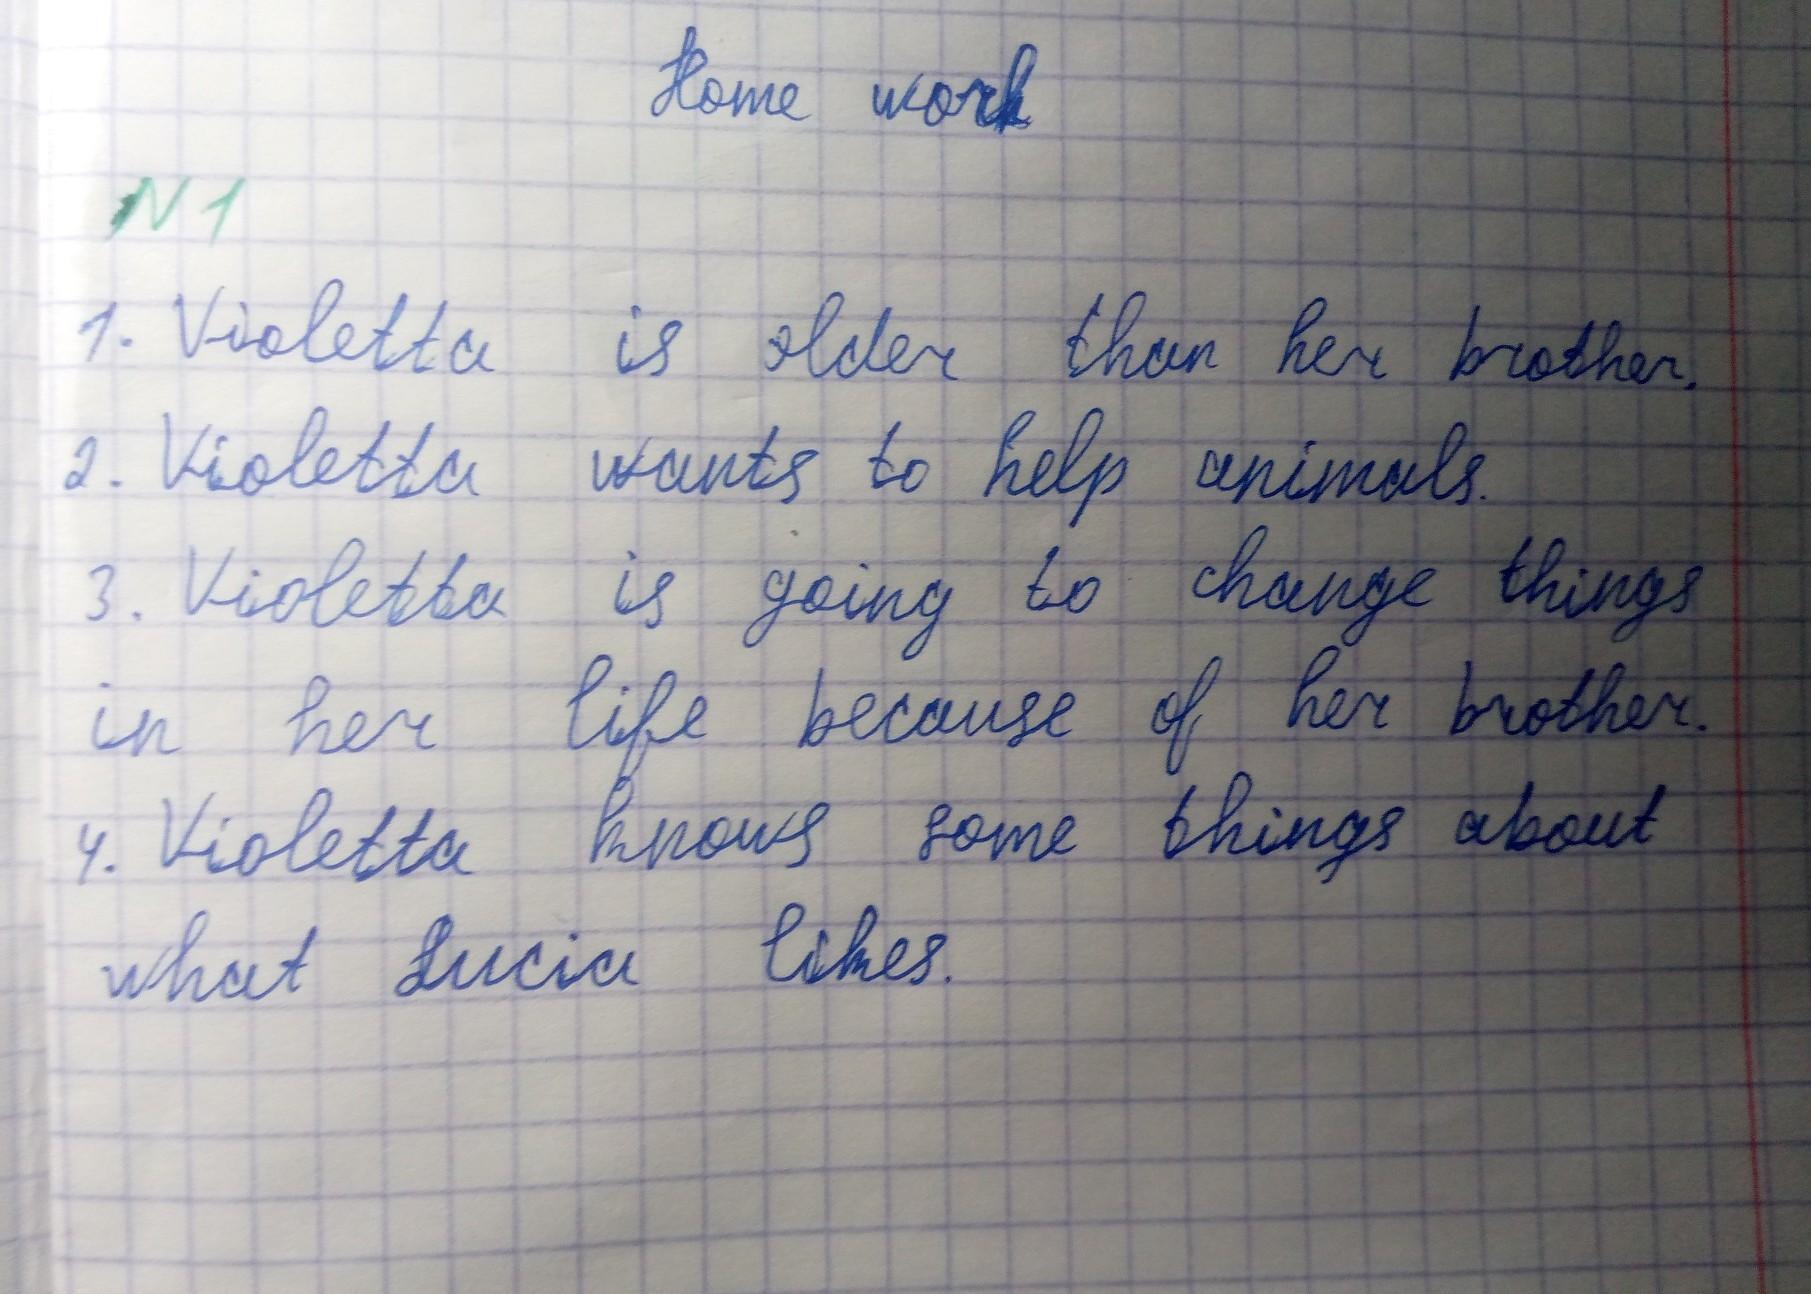 Home work
N1
1. Violetta is older than her brother.
2. Violetta wants to help animals.
3. Violetta is going to change things
in her life because of her brother.
4. Violetta knows some things about
what Lucia likes.